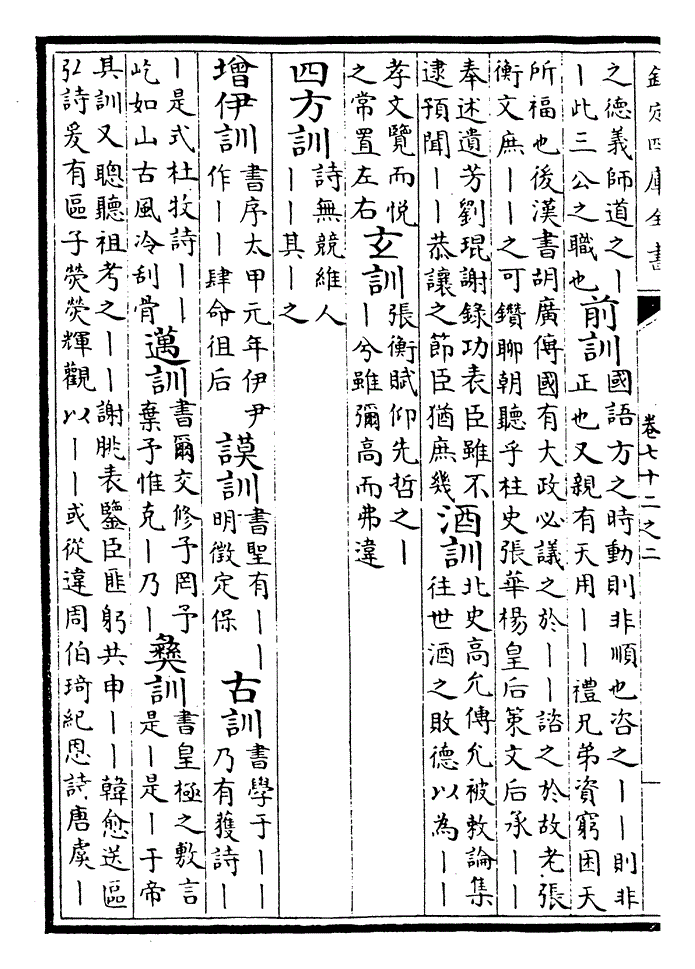 欽定四庫全書
卷七十二之二
之德義師道之｜
｜此三公之職也
前訓
國語方之時動則非順也咨之｜｜則非
正也又親有天用｜｜禮兄弟資窮困天
所福也後漢書胡廣傳國有大政必議之於｜｜諮之於故老張
衡文庶｜｜之可鑽聊朝聽乎柱史張華楊皇后策文后承｜｜
奉述遺芳劉琨謝錄功表臣雖不
逮預聞｜｜恭讓之節臣猶庶幾
酒訓
北史高允傳允被敕論集
往世酒之敗德以為｜｜
孝文覽而悅
之常置左右
玄訓
張衡賦仰先哲之｜
｜兮雖彌高而弗違
四方訓
詩無競維人
｜｜其｜之
增伊訓
書序太甲元年伊尹
作｜｜肆命徂后
謨訓
書聖有｜｜
明徵定保
古訓
書學于｜｜
乃有獲詩｜
｜是式杜牧詩｜｜
屹如山古風冷刮骨
邁訓
書爾交修予罔予
棄予惟克｜乃｜
彝訓
書皇極之敷言
是｜是｜于帝
其訓又聰聽祖考之｜｜謝朓表鑒臣匪躬共申｜｜韓愈送區
弘詩爰有區子熒熒輝觀以｜｜或從違周伯琦紀恩詩唐虞｜